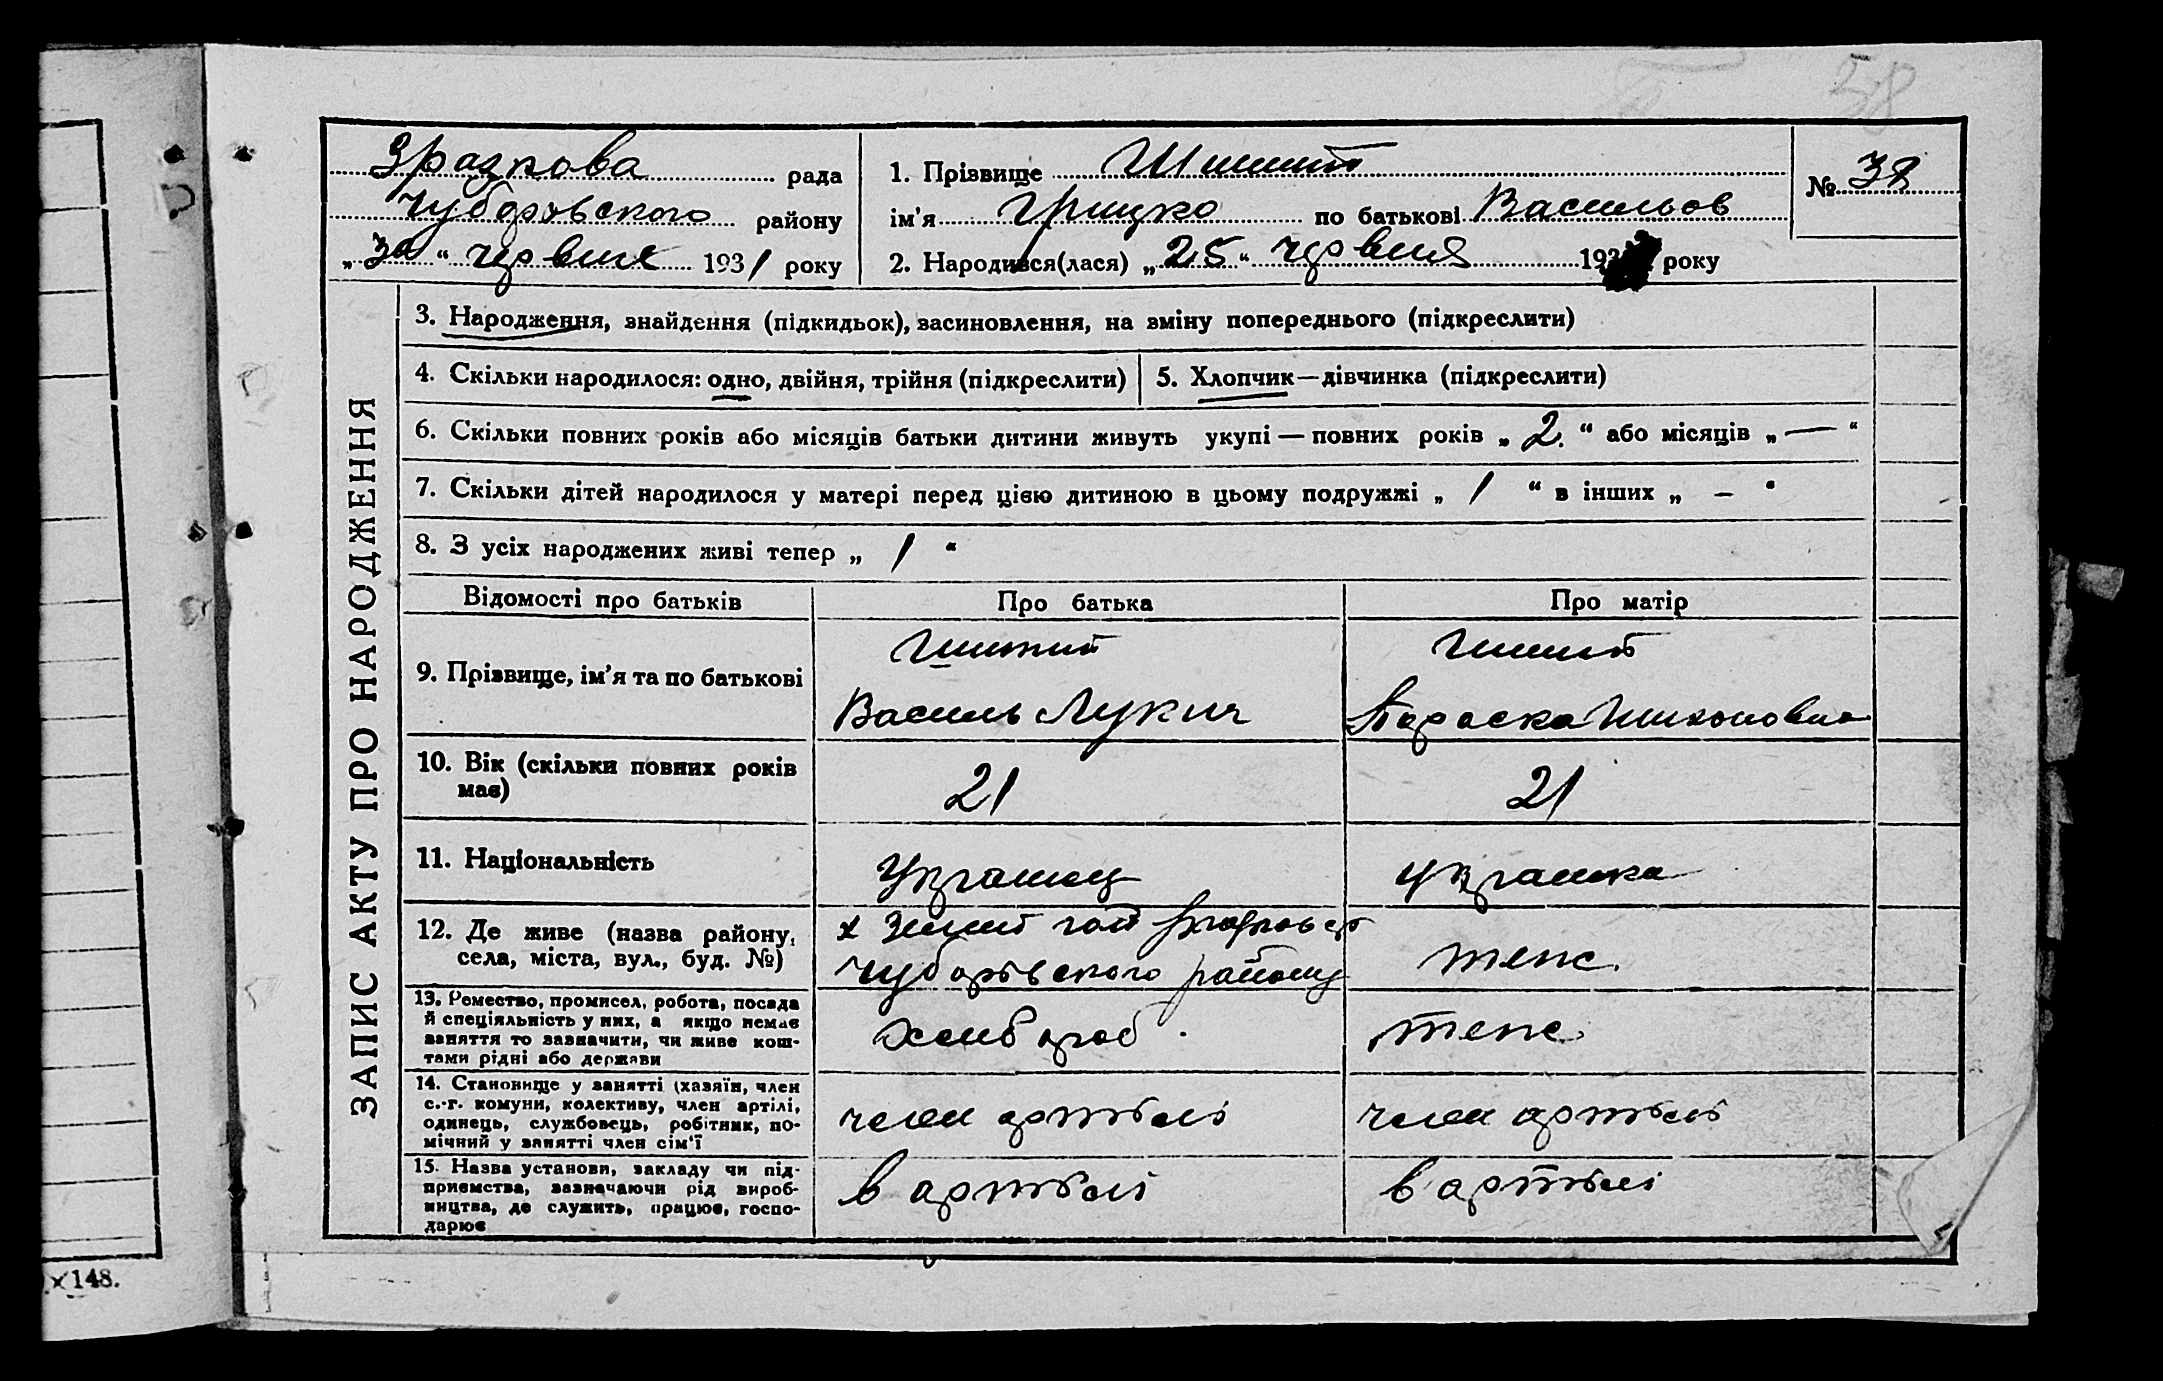 58
Зразкова рада
Чубарівського району
„30“ червня 1931 року
1. Прізвище Шиший
ім'я Грицко по батькові Васильов
2. Народився(лася) „25“ червня 193 року
№ 38
ЗАПИС АКТУ ПРО НАРОДЖЕННЯ
3. Народження, знайдення (підкидьок), засиновлення, на зміну попереднього (підкреслити)
4. Скільки народилося: одно, двійня, трійня (підкреслити)
5. Хлопчик—дівчинка (підкреслити)
6. Скільки повних років або місяців батьки дитини живуть укупі — повних років „2.“ або місяців „—“
7. Скільки дітей народилося у матері перед цією дитиною в цьому подружжі „1“ в інших „–“
8. З усіх народжених живі тепер „1“
Відомості про батьків
Про батька
Про матір
9. Прізвище, ім'я та по батькові
Шиший
Василь Лукич
Шиший
Параска
10. Вік (скільки повних років має)
21
21
11. Національність
Українец
українка
12. Де живе (назва району, села, міста, вул., буд. №)
х гай
Чубарівського району
теж
13. Ремество, промисел, робота, посада
й спеціяльність у них, а якщо немає
заняття то зазначити, чи живе кош-
тами рідні або держави
хлибороб.
теж
14. Становище у занятті (хазяїн, член
с.-г. комуни, колективу, член артілі,
одинець, службовець, робітник, по-
мічний у занятті член сім'ї
член артілі
член артілі
15. Назва установи, закладу чи під-
приємства, зазначаючи рід вироб-
ництва, де служить, працює, госпо-
дарює
в артілі
в артілі
х 148.